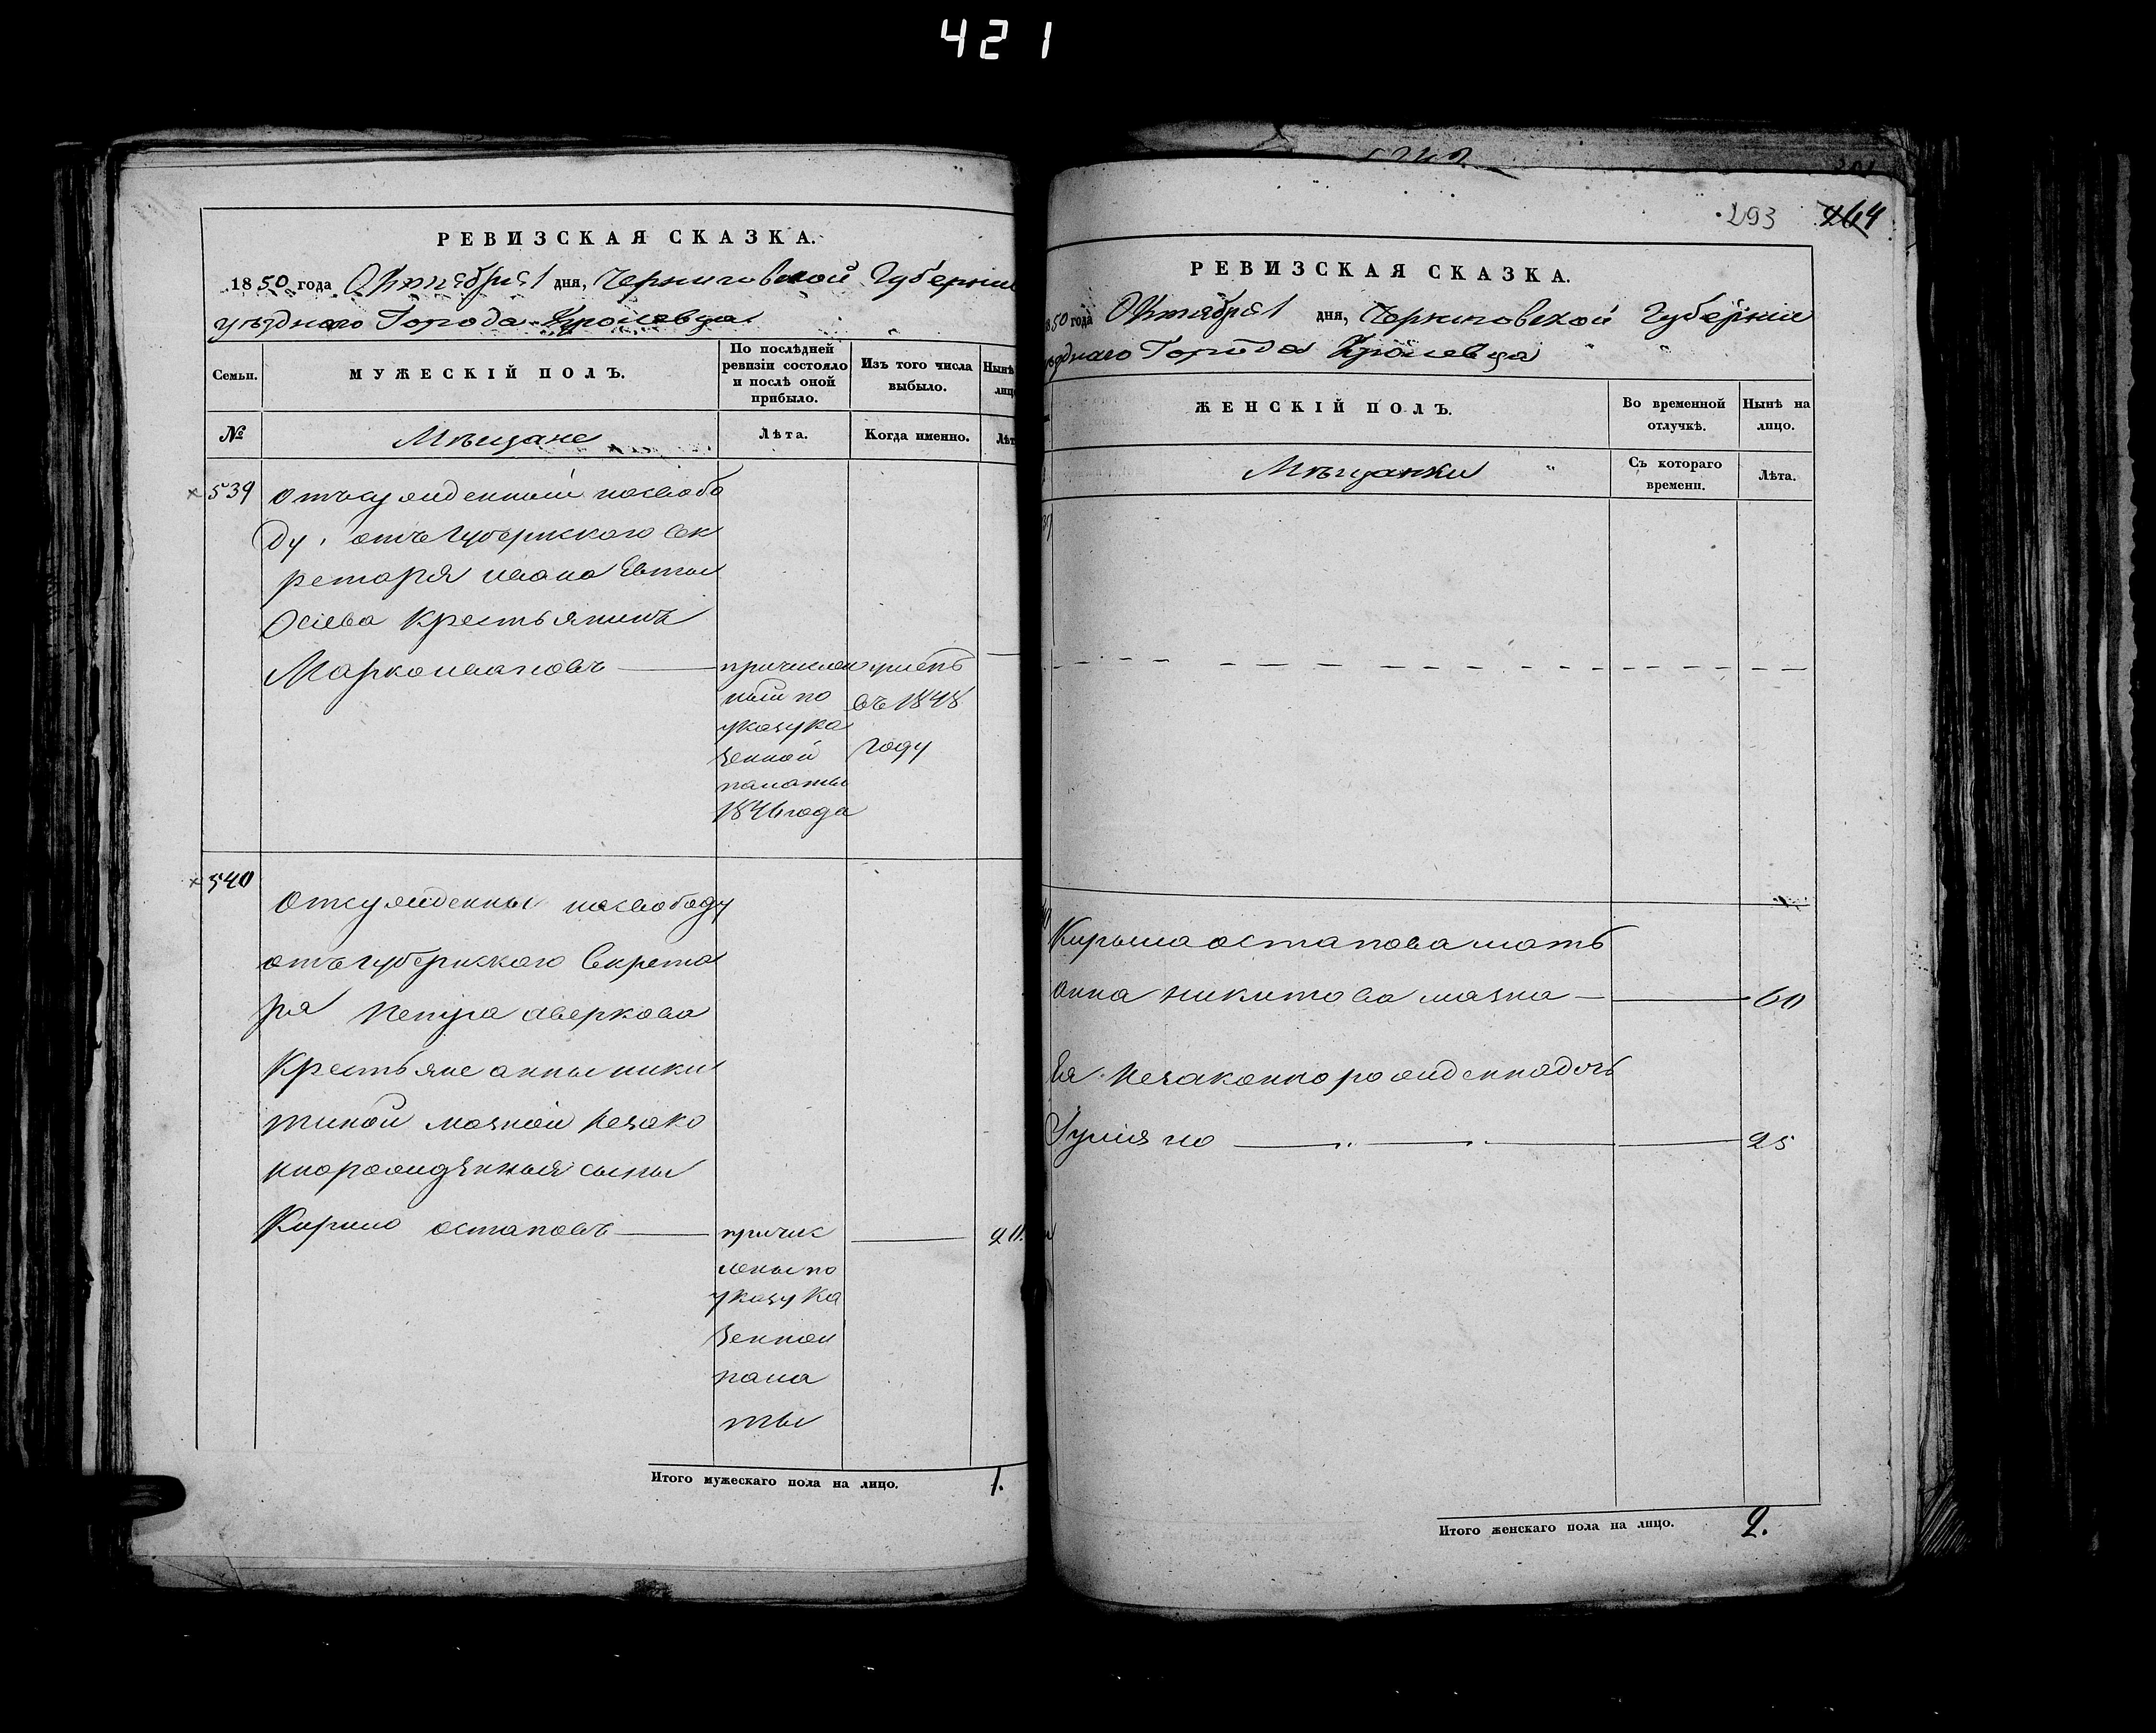 421
РЕВИЗСКАЯ СКАЗКА.
1850 года Октября 1 дня, Черниговской Губернии
уѣзднаго Города Кролевца
Семьи.
МУЖЕСКІЙ ПОЛЪ.
По послѣдней ревизіи состояло и послѣ оной прибыло.
Изъ того числа выбыло.
Нынѣ
№
Мѣщане
Лѣта.
Когда именно.
539
отъсужденный насвобо
ду отъ Губернского Сек
ретаря ивана Евты
Осіева Крестьянинъ
Марко ивановъ
причислен
ный по
указу ка
зенной
палаты
1846 года
умеръ
въ 1848
году
540
отсужденны насвободу
отъ губернского Секрета
ря Петра аверкова
Крестьяне анны ники
тиной мазной незако
норожденныя сыны
Кирило остаповъ
причис
лены по
указу ка
зенной
пала
ты
20.
Итого мужескаго пола на лицо.
1.
293
264
РЕВИЗСКАЯ СКАЗКА.
1850 года Октября 1 дня, Черниговской Губерніи
уѣзднаго Города Кролевца
ЖЕНСКІЙ ПОЛЪ.
Во временной отлучкѣ.
Нынѣ на лицо.
Мѣщанки
Съ котораго времени.
Лѣта.
Кирила остапова мать
анна никитова мазна
60
Ея незаконнорожденна дочь
25
Итого женскаго пола на лицо.
2.